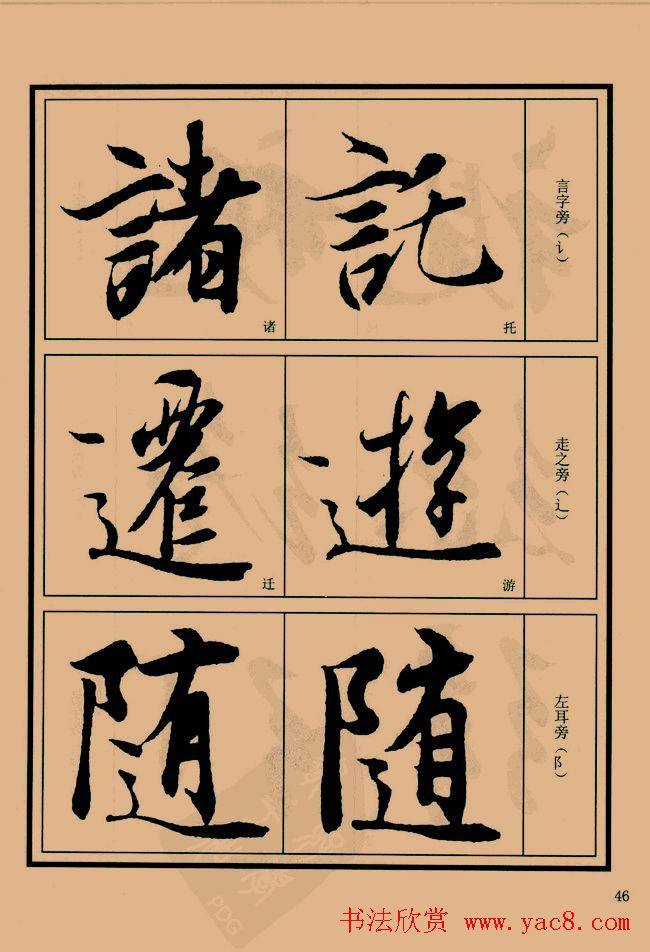 言字旁（讠）
託
托
諸
诸
走之旁（辶）
遊
游
遷
迁
左耳旁（阝）
随
随
46
书法欣赏 www.yac8.com